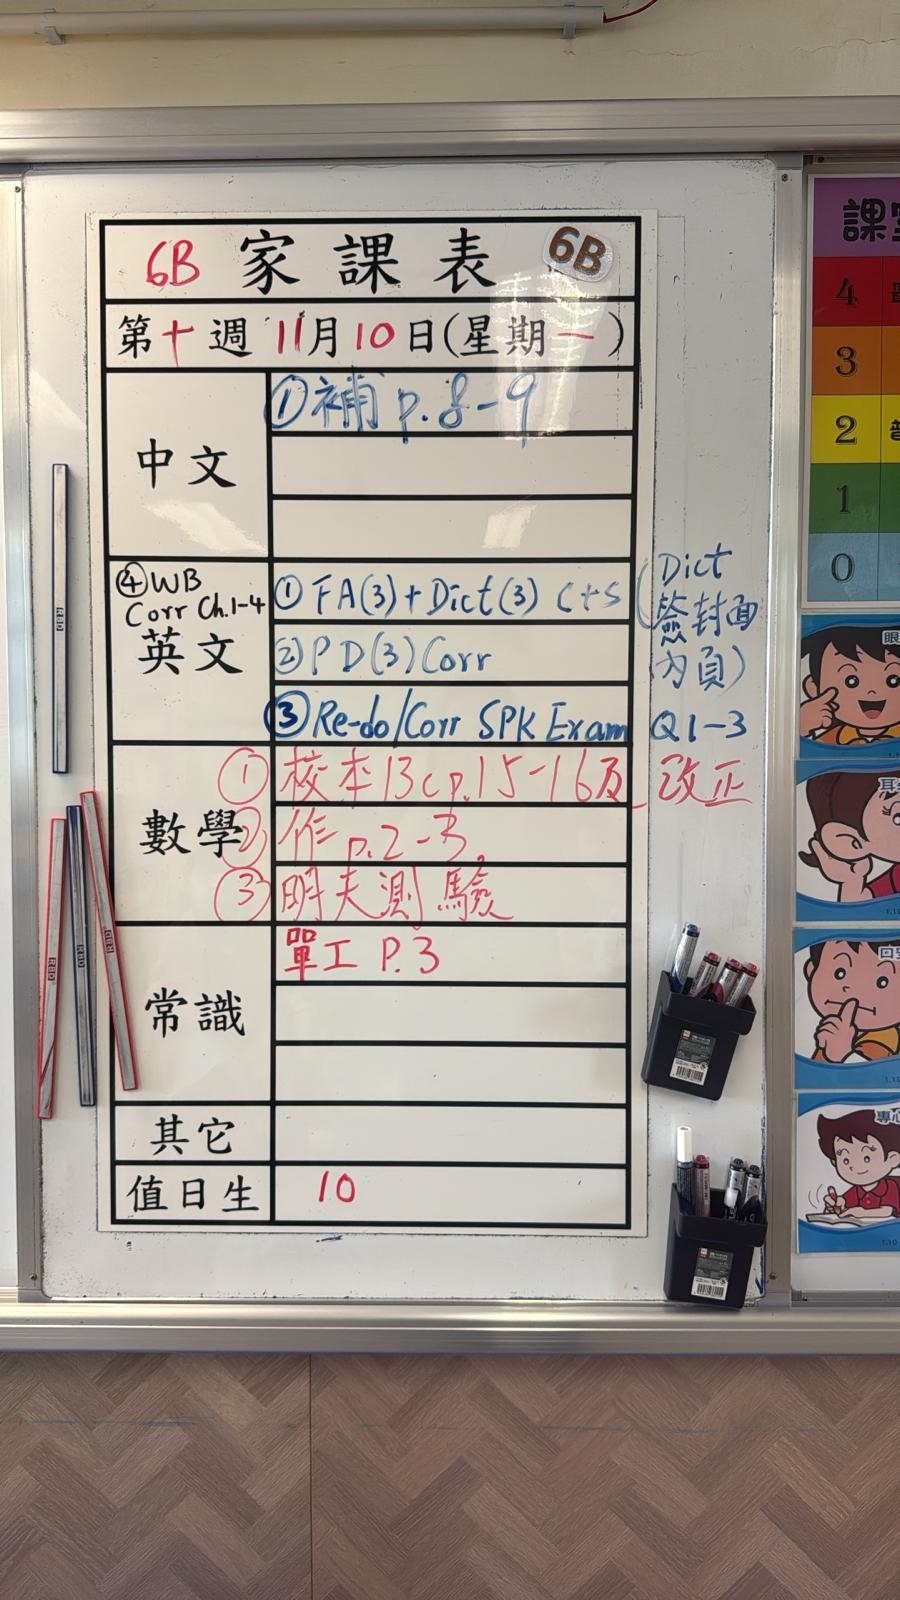 6B 家課表 6B
第十週 11月10日(星期一)
中文
①補 p.8-9
英文
①FA(3)+Dict(3) C+S (Dict
簽封面
內頁)
②PD(3)Corr
③Re-do/Corr SPK Exam Q1-3
④WB
Corr Ch.1-4
數學
①校本13C p.15-16及改正
②作 p.2-3。
③明天測驗
常識
單工 P.3
其它
值日生
10
課室
4
3
2
1
0